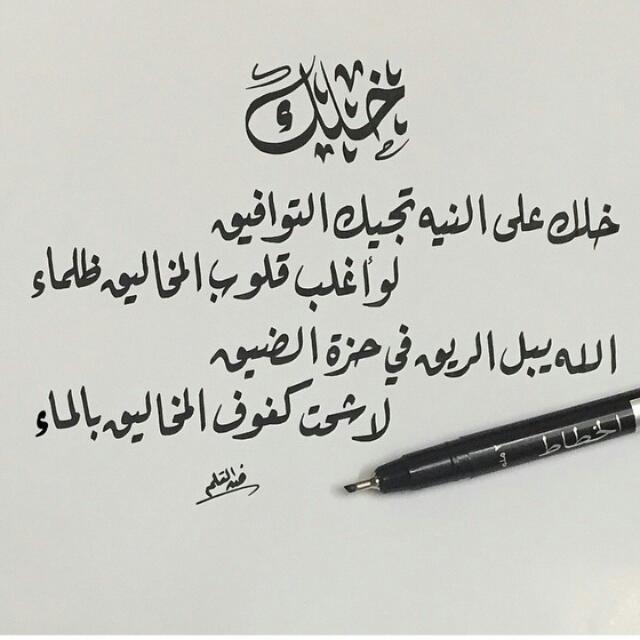 خليك
خلك على النيه تجيك التوافيق
لو أغلب قلوب المخاليق ظلماء
الله يبل الريق في حزة الضيق
لا شحت كفوف المخاليق بالماء
فنه القلم
الخطاط